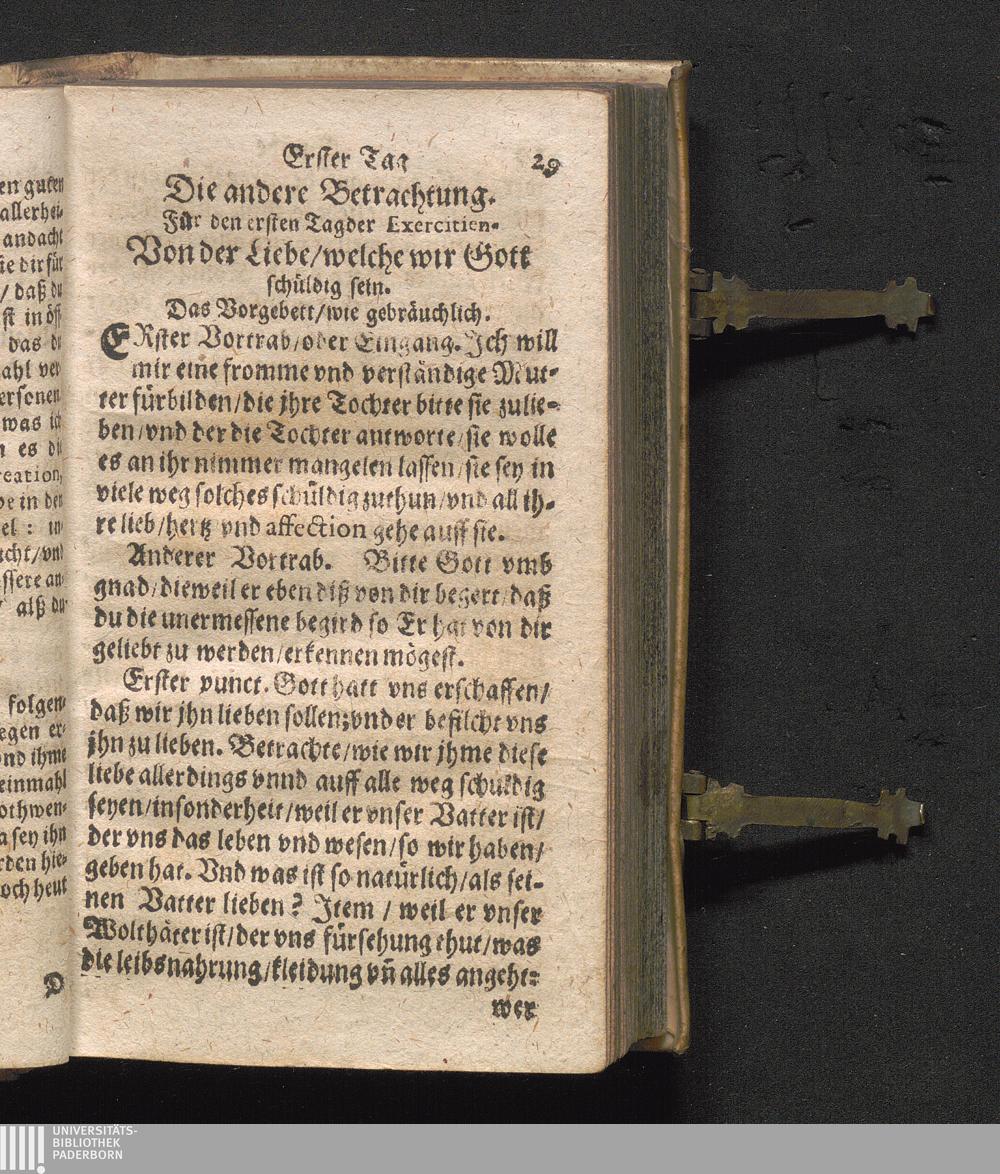 en guten
allerhei-
andacht
sie dir für
/ daß du
st in öff
das di
ahl ver
ersonen
was ich
n es di
reation,
be in der
el : in
icht/vnd
ssere an-
alß du
folgen-
egen er-
vnd ihme
einmahl
othwen-
a sey ihn
rden hie-
och heut
D
Erster Tag 29
Die andere Betrachtung.
Für den ersten Tag der Exercitien.
Von der Liebe/welche wir Gott
schüldig sein.
Das Vorgebett/wie gebräuchlich.
ERster Vortrab/oder Eingang. Jch will
mir eine fromme vnd verständige Mut-
ter fürbilden/die jhre Tochter bitte sie zulie-
ben/vnd der die Tochter antworte/sie wolle
es an ihr nimmer mangelen lassen/sie sey in
viele weg solches schüldig zuthun/vnd all ih-
re lieb/hertz vnd affection gehe auff sie.
Anderer Vortrab. Bitte Gott vmb
gnad/dieweil er eben diß von dir begert/daß
du die unermessene begird so Er hat von dir
geliebt zu werden/erkennen mögest.
Erster punct. Gott hatt vns erschaffen/
daß wir jhn lieben sollen;vnd er befilcht vns
jhn zu lieben. Betrachte/wie wir jhme diese
liebe allerdings vnnd auff alle weg schuldig
seyen/insonderheit/weil er vnser Vatter ist/
der vns das leben vnd wesen/so wir haben/
geben hat. Vnd was ist so natürlich/als sei-
nen Vatter lieben? Item / weil er vnser
Wolthäter ist/der vns fürsehung thut/was
die leibsnahrung/kleidung vñ alles angeht:
wer
UNIVERSITÄTS-
BIBLIOTHEK
PADERBORN